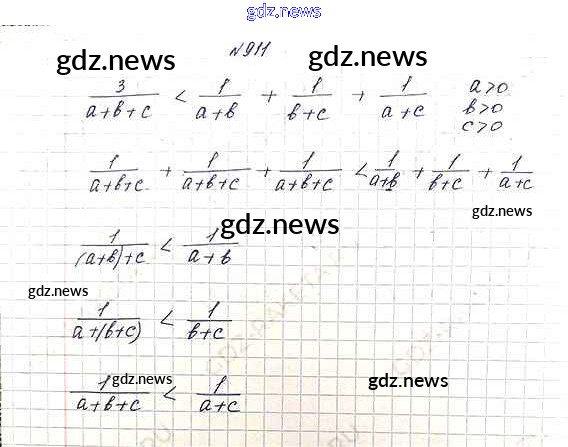 gdz.news
№911
gdz.news gdz.news
3/(a+b+c) < 1/(a+b) + 1/(b+c) + 1/(a+c) a>0
b>0
c>0
1/(a+b+c) + 1/(a+b+c) + 1/(a+b+c) < 1/(a+b) + 1/(b+c) + 1/(a+c)
gdz.news
gdz.news
1/((a+b)+c) < 1/(a+b)
gdz.news
1/(a+(b+c)) < 1/(b+c)
gdz.news gdz.news
1/(a+b+c) < 1/(a+c)